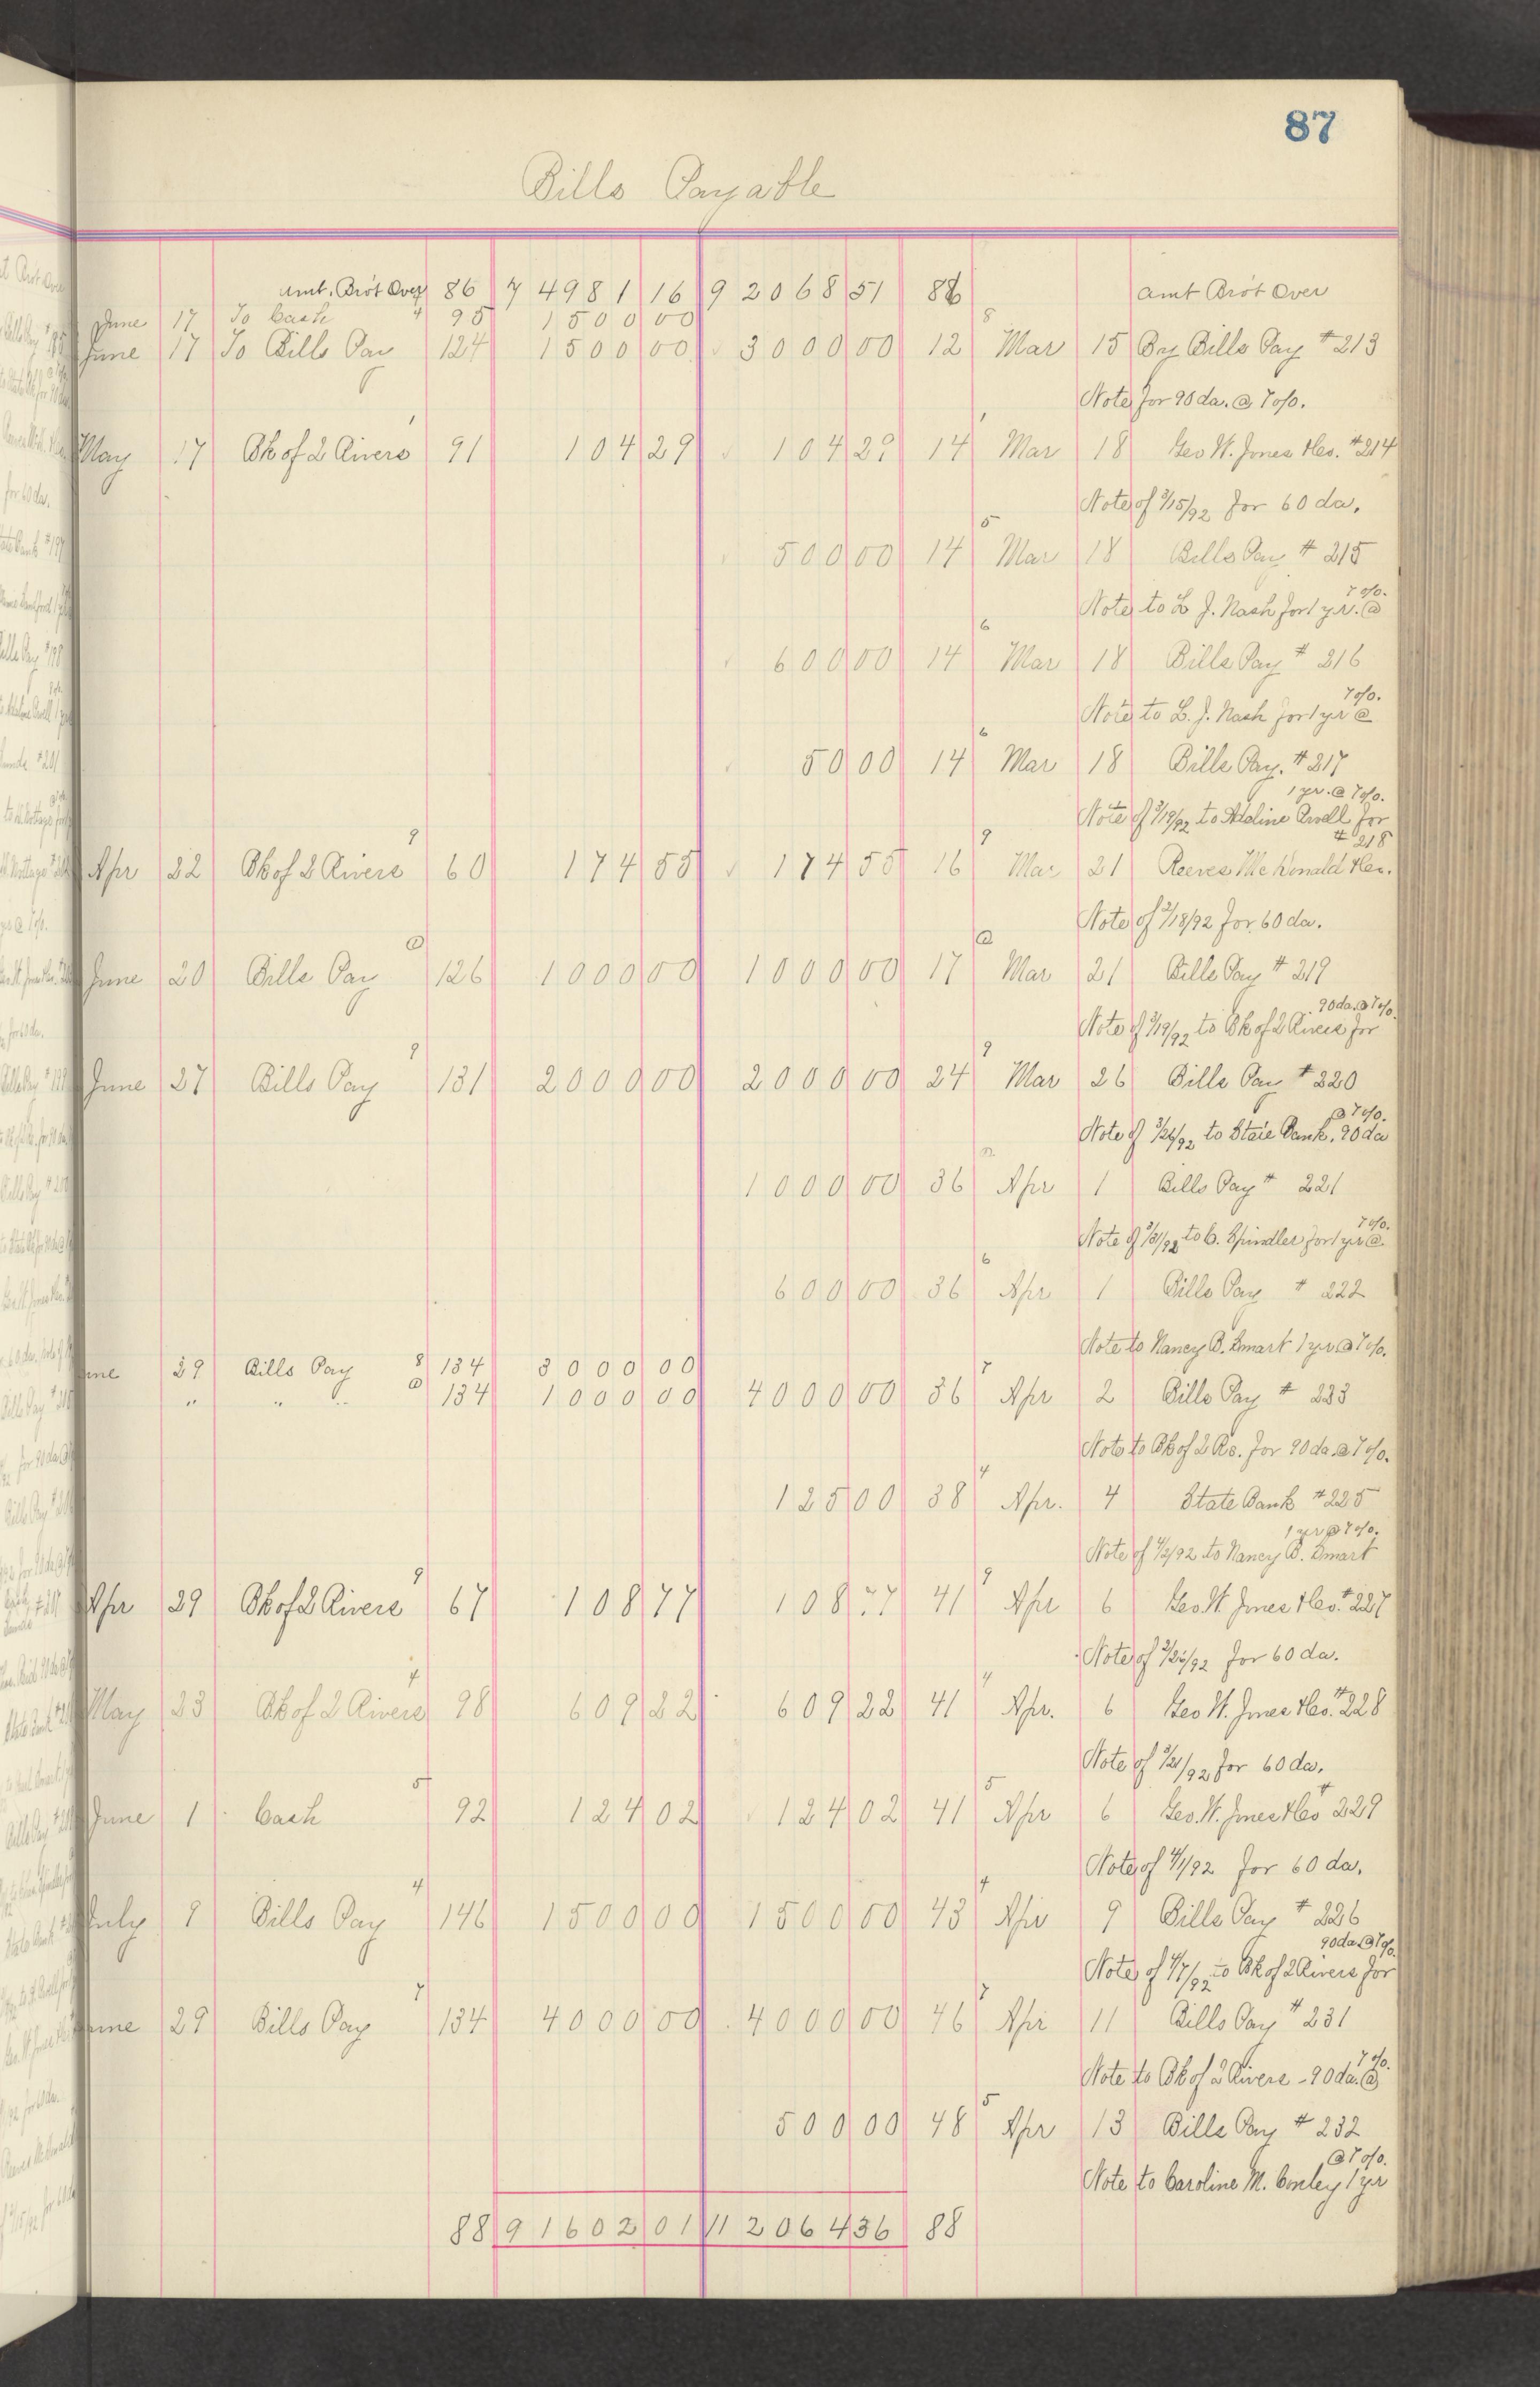 87
Bills Payable
Amt. Bro't Over 86 74981 16 92068 51 86 Amt Bro't Over
June 17 To Cash 4 95 1500 00
June 17 To Bills Pay 124 1500 00 3000 00 12 8 Mar 15 By Bills Pay #213
Note for 90 da. @ 7 o/o.
May 17 Bk of 2 Rivers 91 104 29 104 29 14 Mar 18 Geo W. Jones & Co. #214
Note of 3/15/92 for 60 da.
500 00 14 5 Mar 18 Bills Pay #215
7 o/o.
Note to L J. Nash for 1 yr. @
600 00 14 6 Mar 18 Bills Pay #216
7 o/o.
Note to L. J. Nash for 1 yr @
50 00 14 6 Mar 18 Bills Pay. #217
1 yr. @ 7 o/o.
Note of 3/19/92 to Adaline Awell for
#218
Apr 22 Bk of 2 Rivers 9 60 174 55 174 55 16 9 Mar 21 Reeves McDonald & Co.
Note of 2/18/92 for 60 da.
June 20 Bills Pay @ 126 1000 00 1000 00 17 @ Mar 21 Bills Pay #219
90 da. @ 7 o/o.
Note of 3/19/92 to Bk of 2 Rivers for
June 27 Bills Pay 9 131 2000 00 2000 00 24 9 Mar 26 Bills Pay #220
@ 7 o/o.
Note of 3/26/92 to State Bank. 90 da
1000 00 36 Apr 1 Bills Pay # 221
7 o/o.
Note of 3/31/92 to C. Spindler for 1 yr @
600 00 36 6 Apr 1 Bills Pay # 222
Note to Nancy B. Smart 1 yr @ 7 o/o.
June 29 Bills Pay 8 134 3000 00
" " " @ 134 1000 00 4000 00 36 7 Apr 2 Bills Pay # 223
Note to Bk of 2 Rs. for 90 da @ 7 o/o.
125 00 38 4 Apr. 4 State Bank #225
1 yr @ 7 o/o.
Note of 4/2/92 to Nancy B. Smart
Apr 29 Bk of 2 Rivers 9 67 108 77 108 77 41 9 Apr 6 Geo. W. Jones & Co. #227
Note of 2/26/92 for 60 da.
May 23 Bk of 2 Rivers 4 98 609 22 609 22 41 4 Apr. 6 Geo W. Jones & Co. #228
Note of 3/21/92 for 60 da.
June 1 Cash 5 92 124 02 124 02 41 5 Apr 6 Geo. W. Jones & Co # 229
Note of 4/1/92 for 60 da.
July 9 Bills Pay 4 146 1500 00 1500 00 43 4 Apr 9 Bills Pay # 226
90 da @ 7 o/o.
Note of 4/7/92 to Bk of 2 Rivers for
June 29 Bills Pay 7 134 4000 00 4000 00 46 7 Apr 11 Bills Pay #231
7 o/o.
Note to Bk of 2 Rivers - 90 da. @
500 00 48 5 Apr 13 Bills Pay # 232
@ 7 o/o.
Note to Caroline M. Conley 1 yr
88 91602 01 112064 36 88